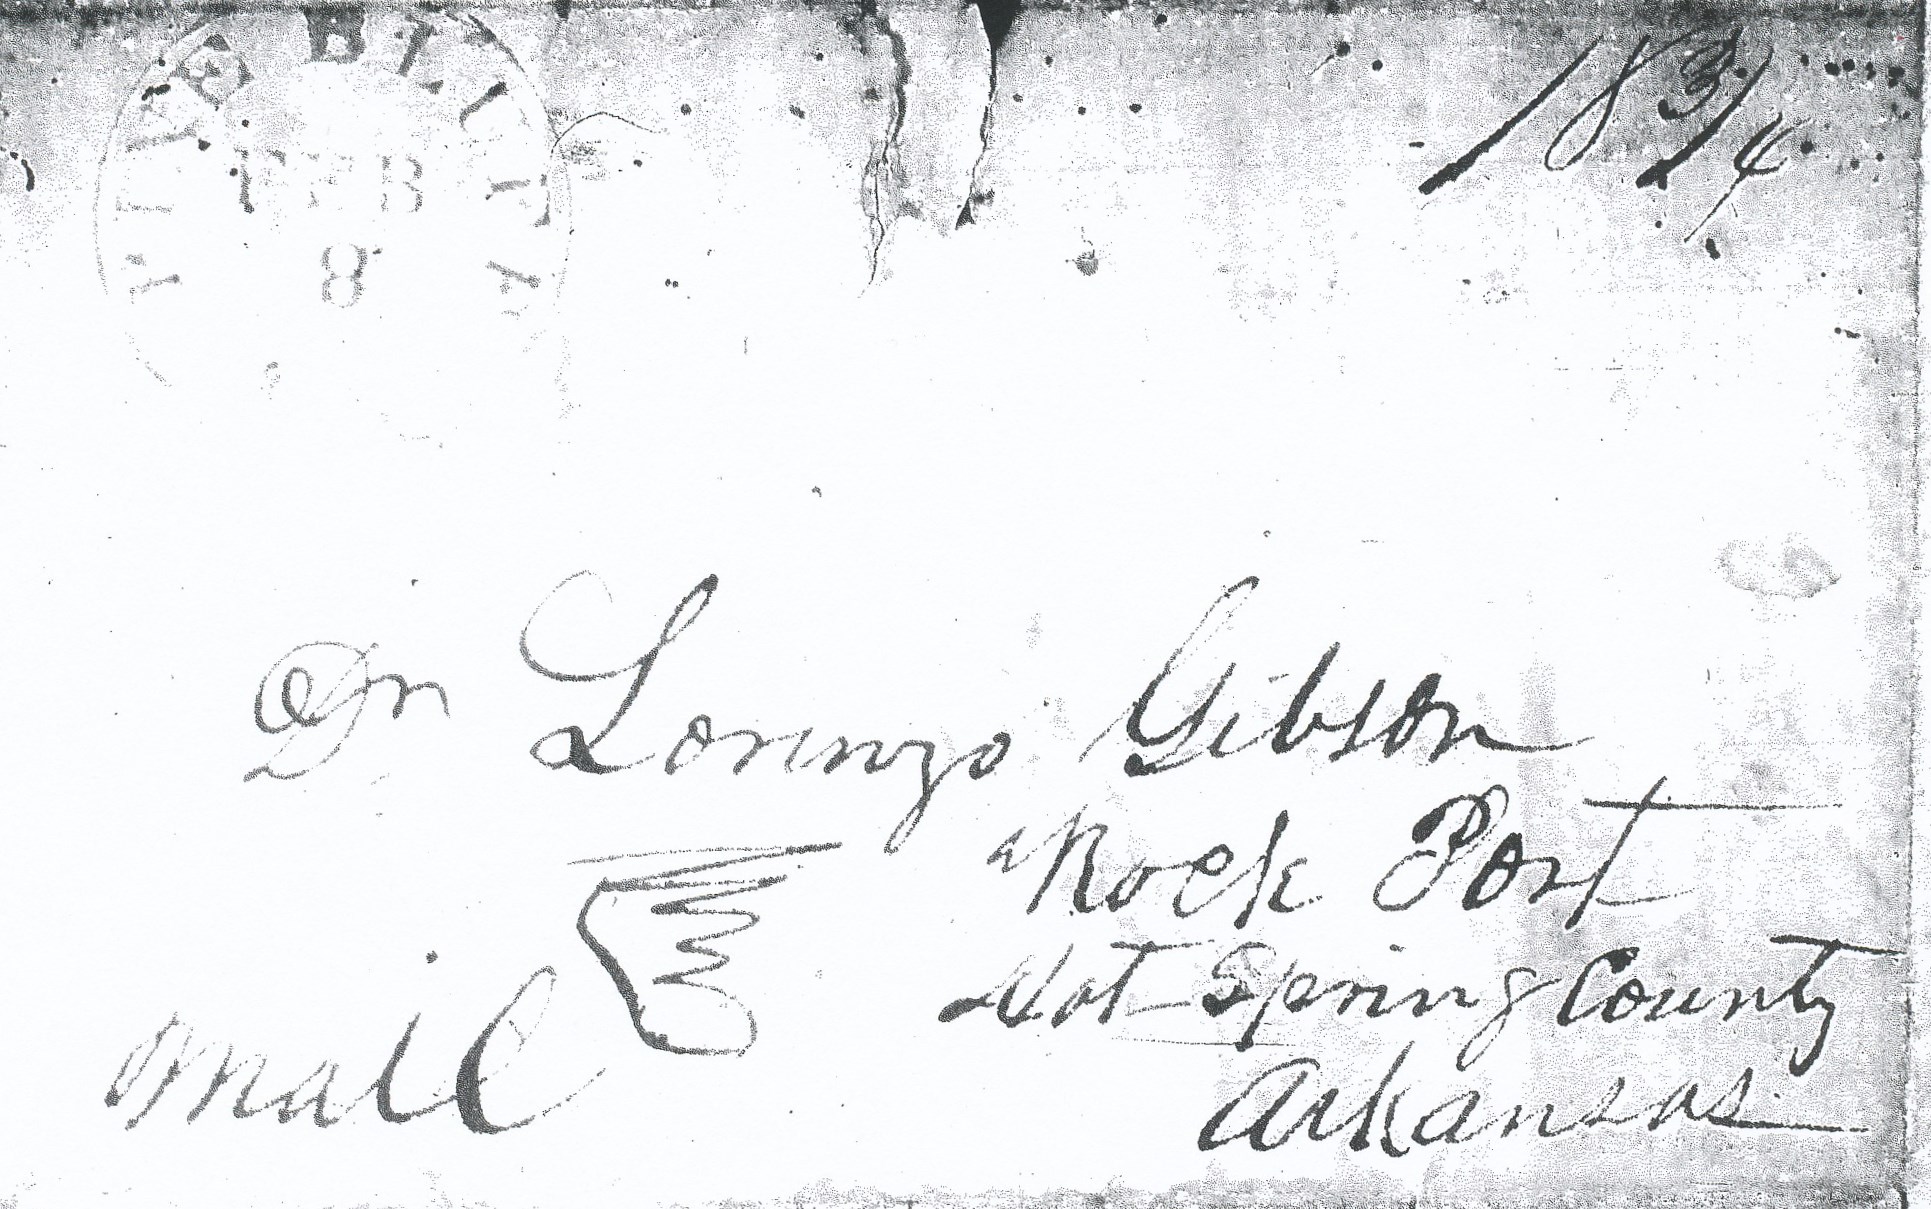 18 3/4
FEB
8
Dr Lorenzo Gibson
Rock Port
Hot Spring County
Arkansas
Mail